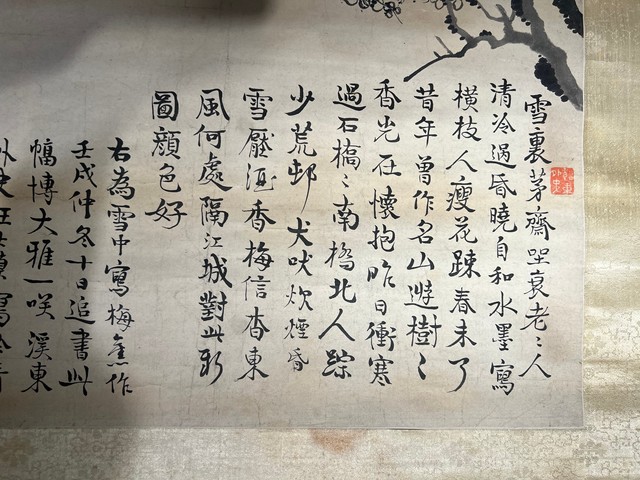 雪裏茅齋坐衰老〻人
清冷過昏曉自和水墨寫
橫枝人瘦花踈春未了
昔年曾作名山遊樹〻
香光在懷抱昨日衝寒
過石橋〻南橋北人踪
少荒邨犬吠炊煙昏
雪壓酒香梅信杳東
風何處隔江城對此新
圖顔色好
右為雪中寫梅舊作
壬戌仲冬十日追書此
幅博大雅一咲溪東
外史汪士慎